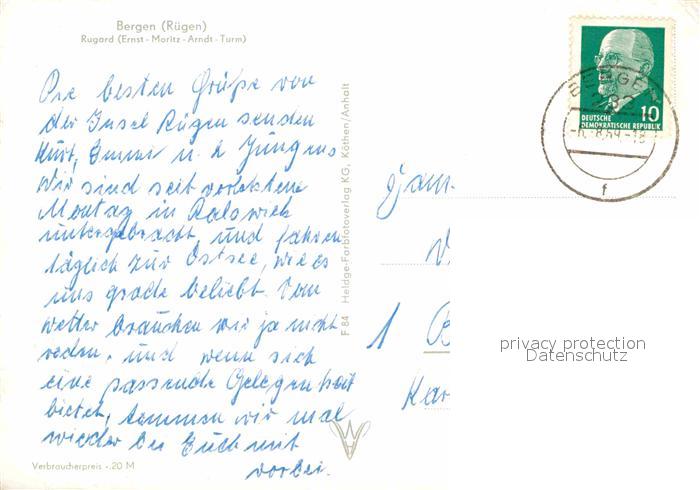 Bergen (Rügen)
Rugard (Ernst-Moritz-Arndt-Turm)
Die besten Grüße von
der Insel Rügen senden
Kurt, Emmi u. 2 Jungens
Wir sind seit vorletzten
Montag in Ralswiek
untergebracht und fahren
täglich zur Ostsee, wie es
uns grade beliebt. Vom
Wetter brauchen wir ja nicht
reden, und wenn sich
eine passende Gelegenheit
bietet, kommen wir mal
wieder bei Euch mit
vorbei.
Verbraucherpreis -.20 M
F 84 Heldge-Farbfotoverlag KG, Köthen/Anhalt
BERGEN
10
DEUTSCHE
DEMOKRATISCHE REPUBLIK
-6.-8.69.-18
f
Fam.
1
Kar
privacy protection
Datenschutz